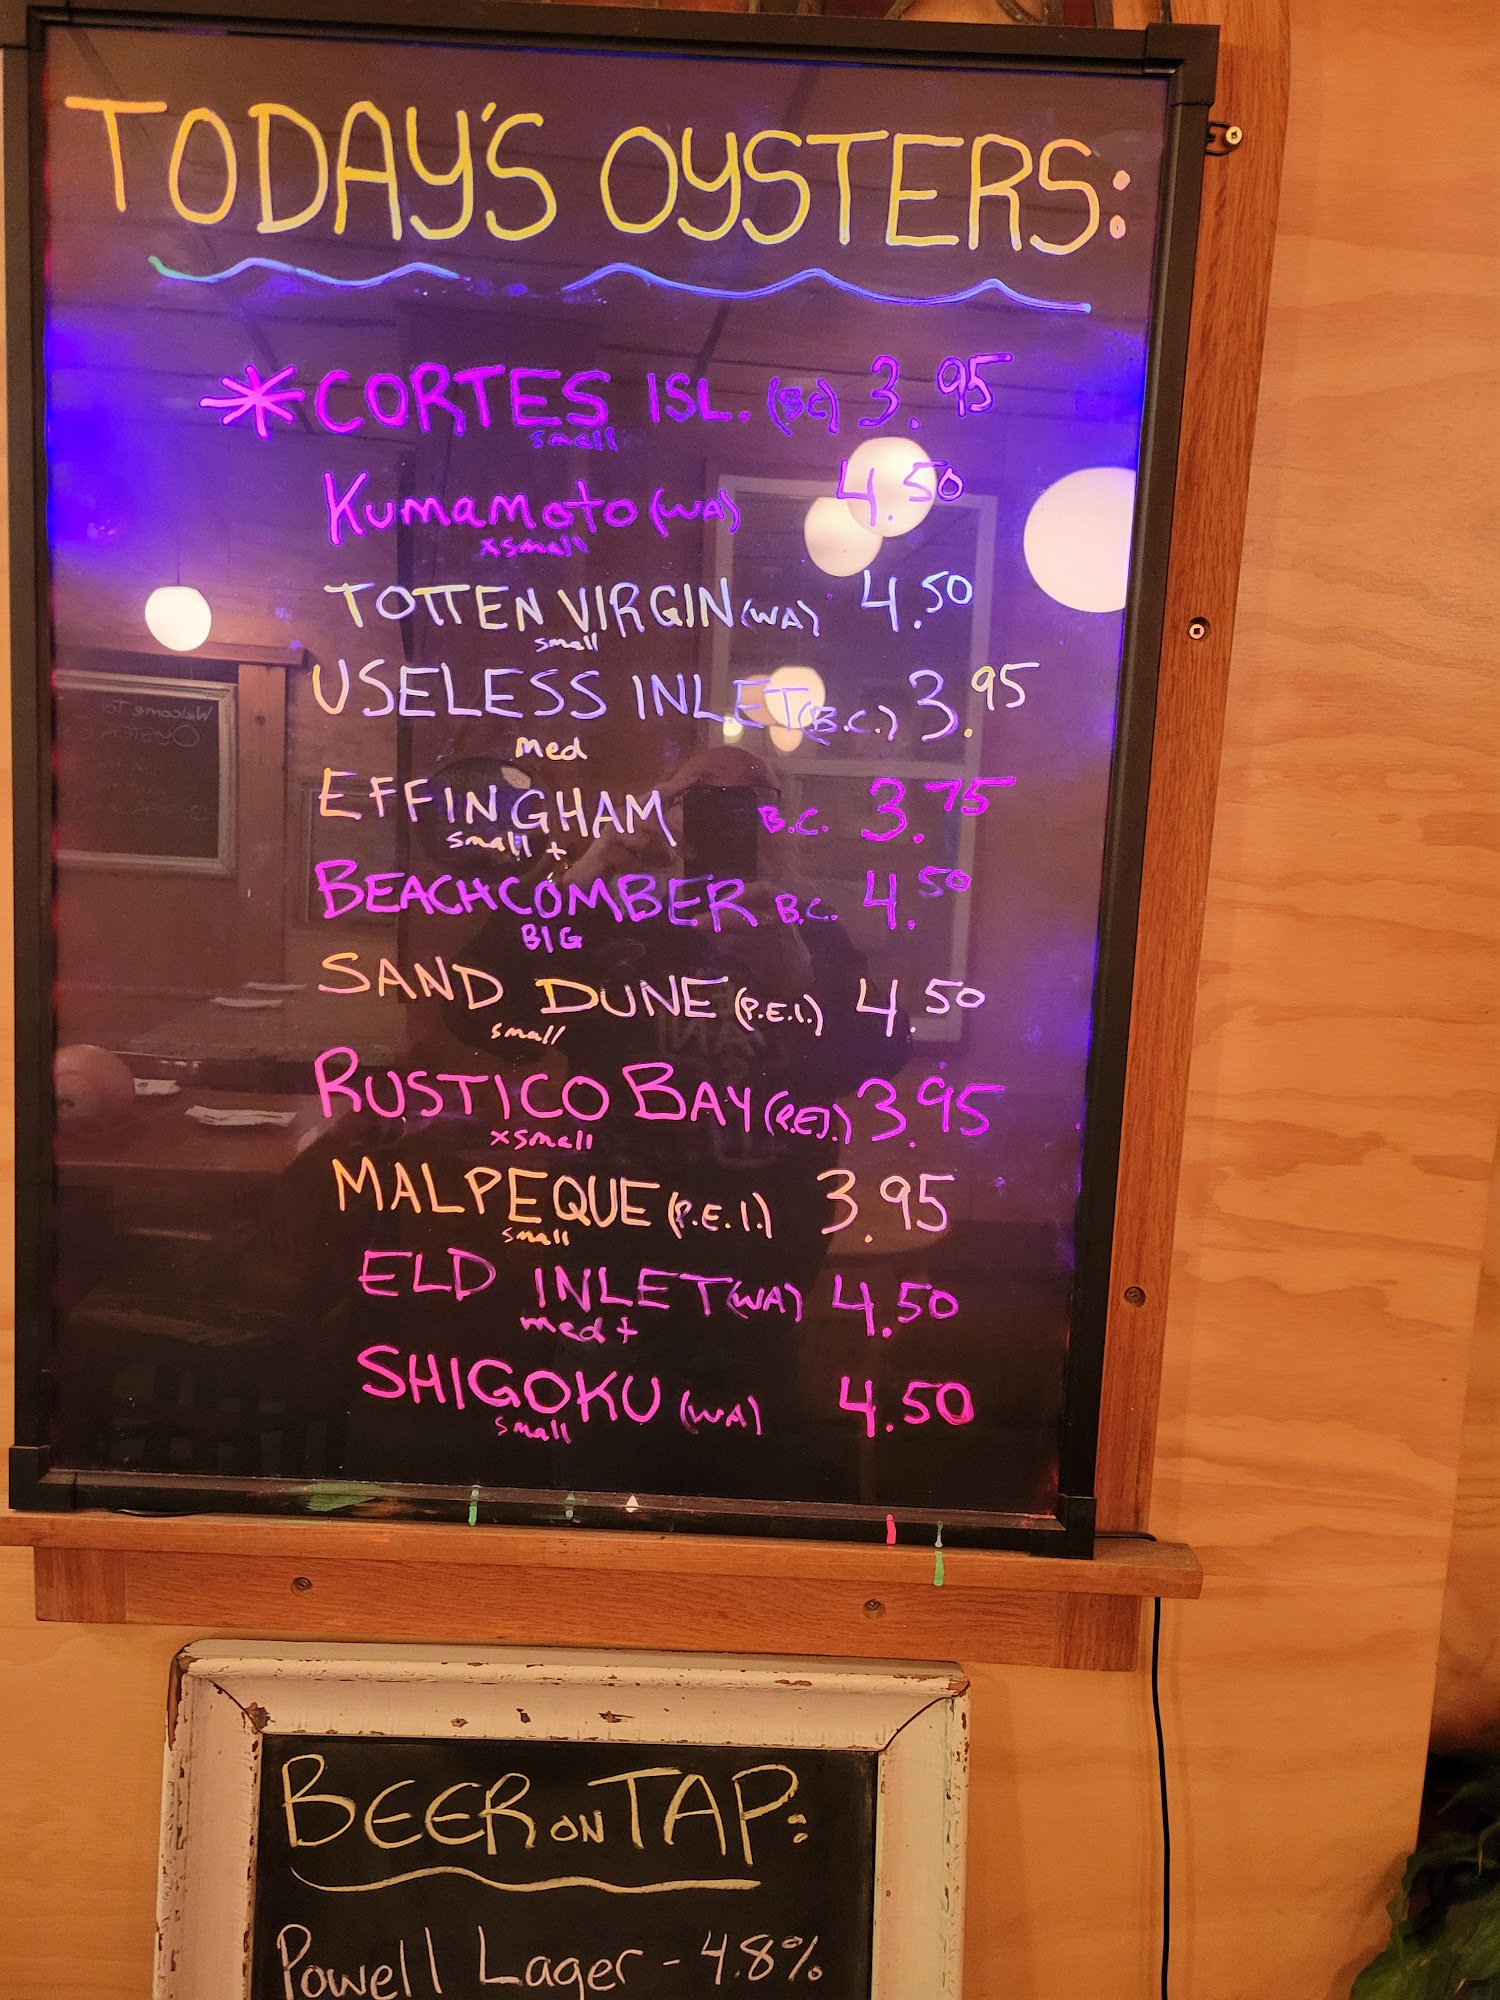 TODAY'S OYSTERS:
*CORTES ISL. (BC) 3.95
small
Kumamoto (WA) 4.50
xsmall
TOTTEN VIRGIN (WA) 4.50
small
USELESS INLET (B.C.) 3.95
med
EFFINGHAM B.C. 3.75
small +
BEACHCOMBER B.C. 4.50
BIG
SAND DUNE (P.E.I.) 4.50
small
RUSTICO BAY (P.E.I.) 3.95
xsmall
MALPEQUE (P.E.I.) 3.95
small
ELD INLET (WA) 4.50
med +
SHIGOKU (WA) 4.50
small
BEER ON TAP:
Powell Lager - 4.8%